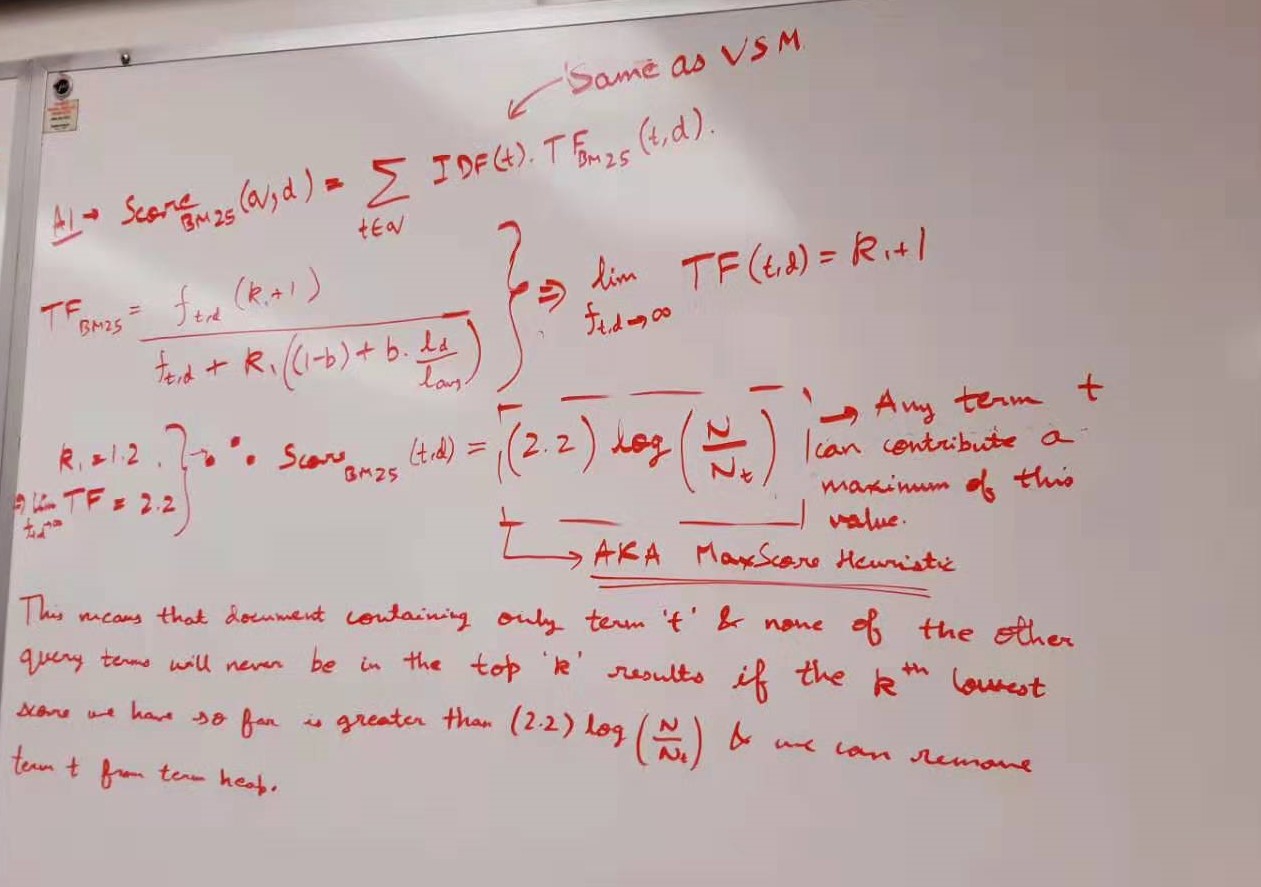 Same as VSM
A1 → Score_BM25 (q,d) = Σ_{t∈q} IDF(t). TF_BM25 (t,d).
TF_BM25 = f_{t,d} (k₁+1) / (f_{t,d} + k₁((1-b) + b. l_d / l_avg)) } ⇒ lim_{f_{t,d}→∞} TF(t,d) = k₁+1
k₁ = 1.2
⇒ lim_{f_{t,d}→∞} TF = 2.2
} → ∴ Score_BM25 (t,d) = (2.2) log (N / N_t)
→ Any term t
can contribute a
maximum of this
value.
→ AKA MaxScore Heuristic
This means that document containing only term 't' & none of the other
query terms will never be in the top 'k' results if the kth lowest
score we have so far is greater than (2.2) log (N / N_t) & we can remove
term t from term heap.